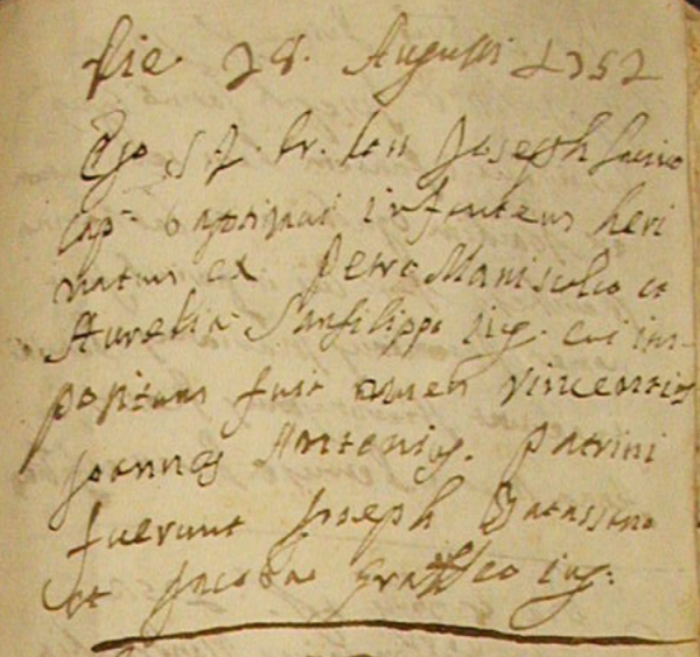 Die 28. Augusti 1752
Ego S. J. Dr. Don Joseph
Cap. baptizavi infantem heri
natum ex Petro Maniscalco et
Aurelia Sanfilippo jug. cui im-
positum fuit nomen Vincentius
Joannes Antonius. Patrini
fuerunt Joseph
et Jacoba Graffeo jug: